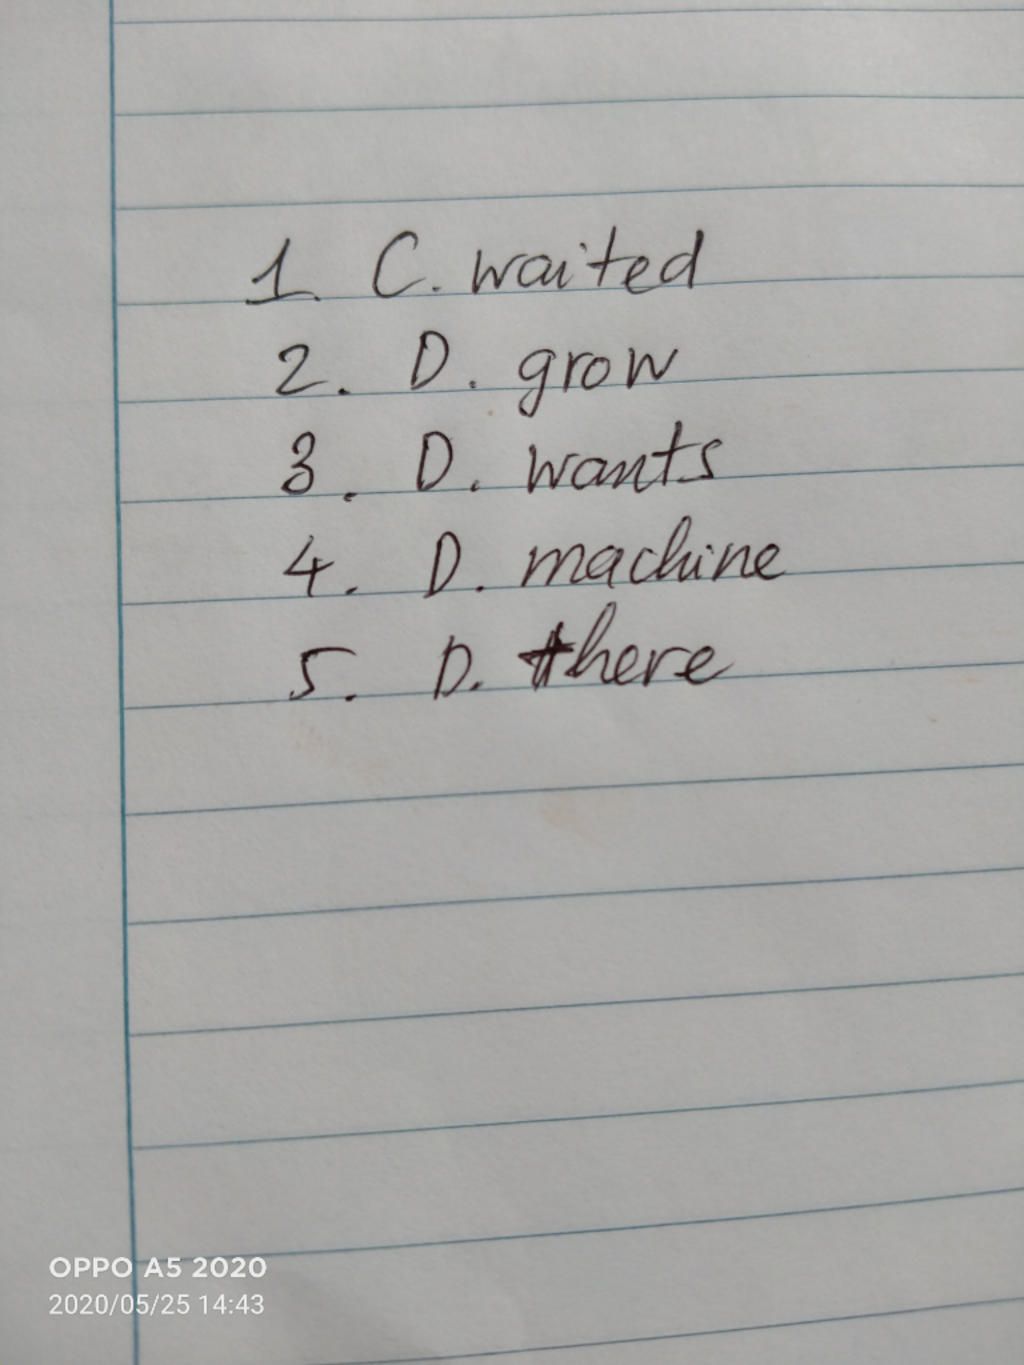 1. C. waited
2. D. grow
3. D. wants
4. D. machine
5. D. there
OPPO A5 2020
2020/05/25 14:43